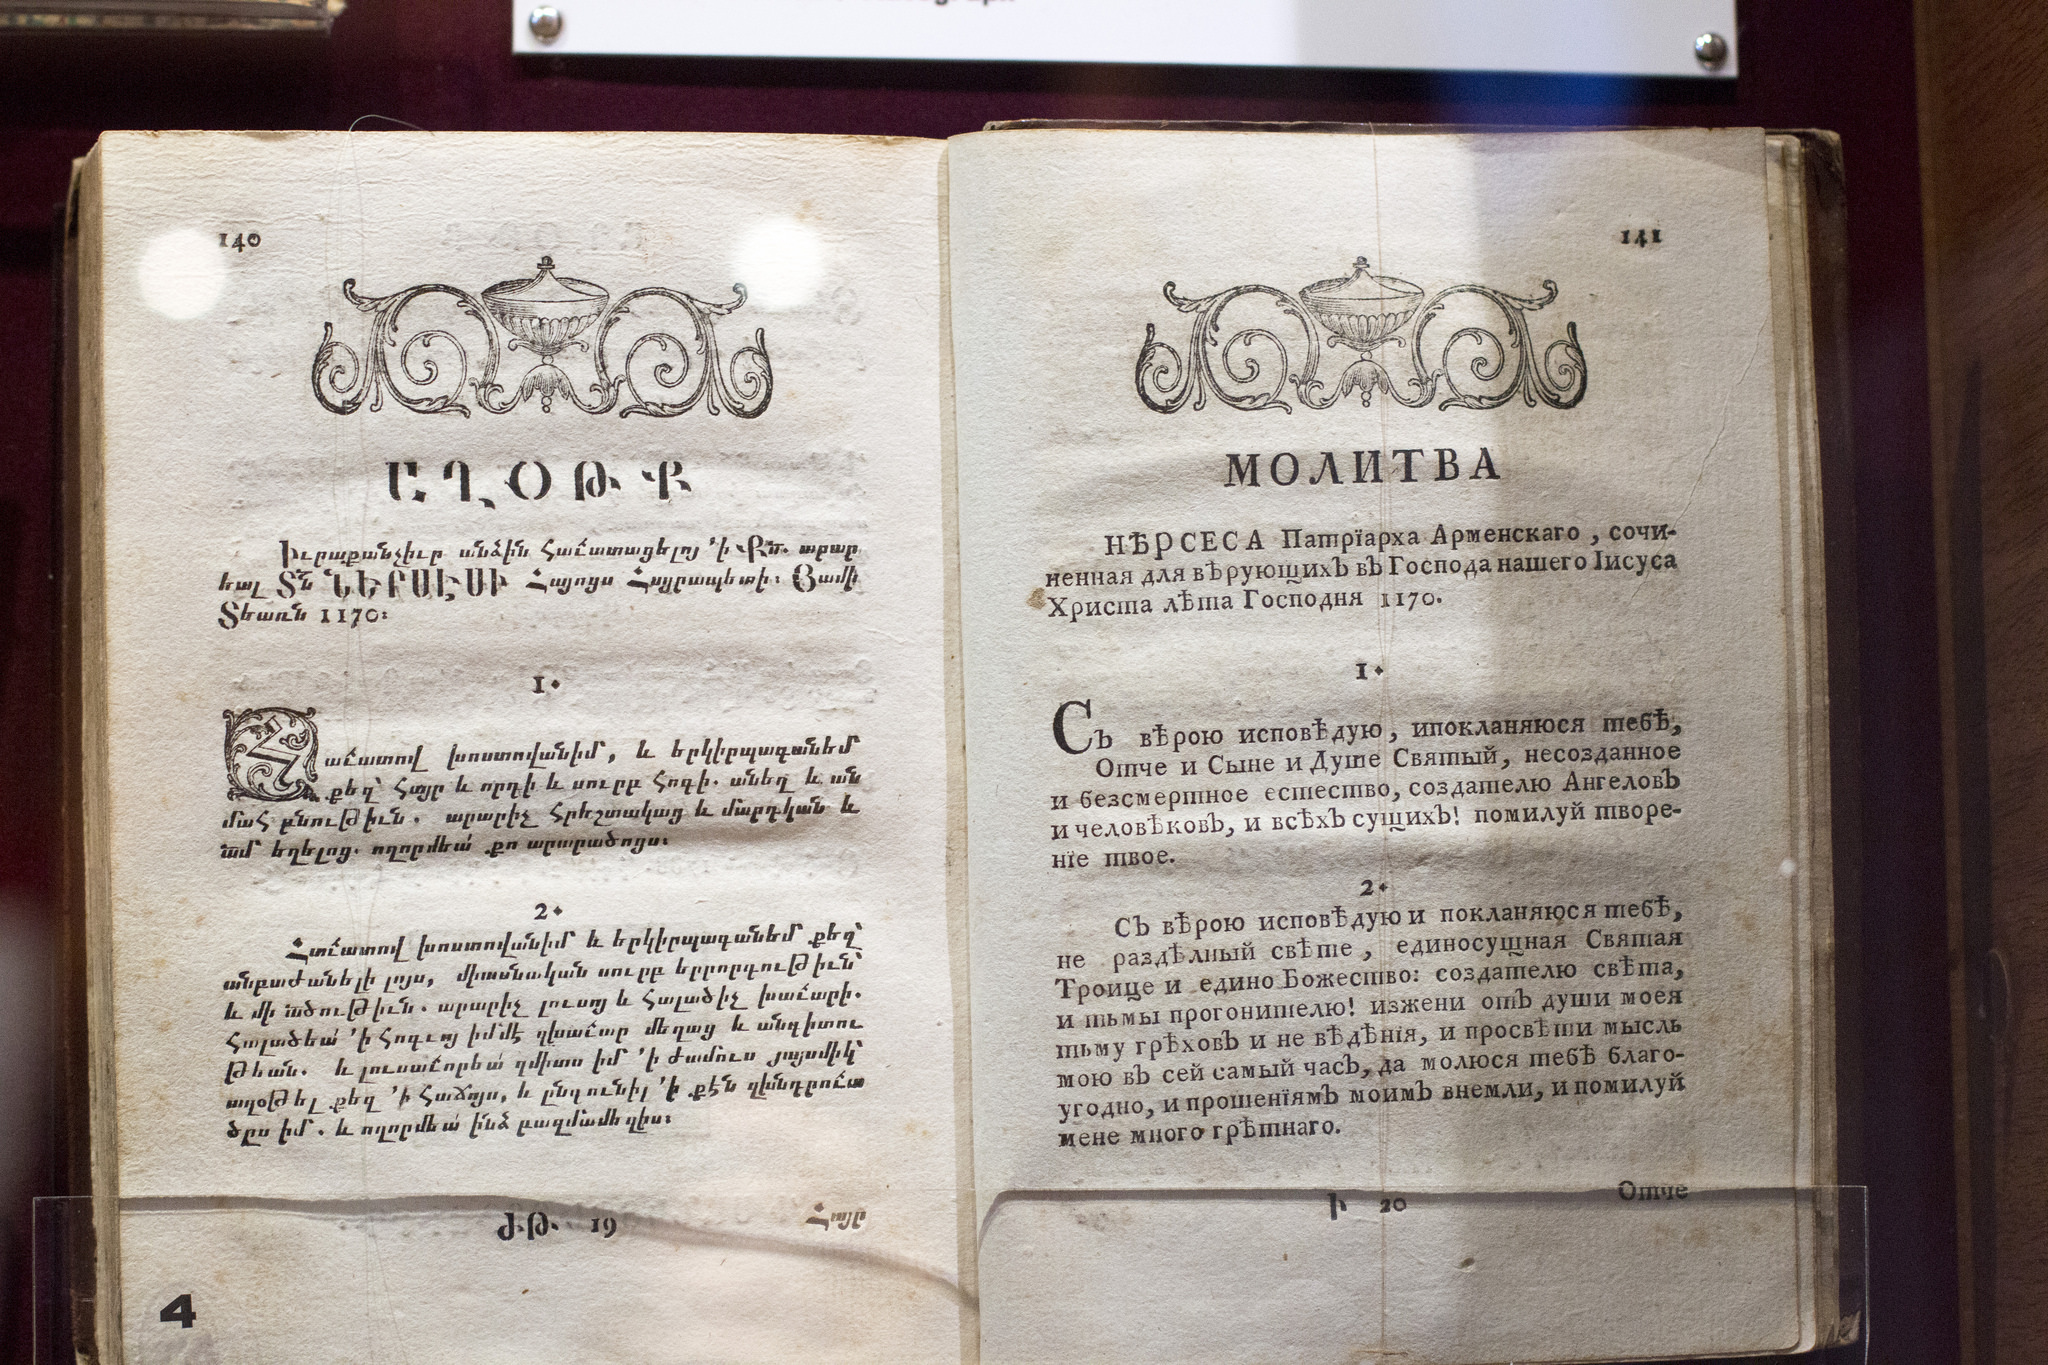 140
ԸՂՕԹՔ
Իւրաքանչիւր անձին Հաւատացելոյ ՚ի Քս. արար
եալ Տն ՆԵՐՍԷՍԻ Հայոցս Հայրապետի։ Յամի
Տեառն 1170։
1.
Հաւատով խոստովանիմ, և երկիրպագանեմ
քեզ՝ Հայր և որդի և սուրբ Հոգի. անեղ և ան
մահ բնութիւն. արարիչ Հրեշտակաց և մարդկան և
ամ եղելոց. ողորմեա՛ քո արարածոցս։
2.
Հաւատով խոստովանիմ և երկիրպագանեմ քեզ՝
անբաժանելի լոյս, միասնական սուրբ երրորդութիւն՝
և մի ածութիւն. արարիչ լուսոյ և Հալածիչ խաւարի.
Հալածեա՛ ՚ի Հոգւոյ իմմէ զխաւար մեղաց և անգիտու
թեան. և լուսաւորեա՛ զմիտս իմ ՚ի ժամուս յայսմիկ՝
աղօթել քեզ ՚ի Հաճոյս, և ընդունիլ ՚ի քէն զխնդրուա
ծըս իմ. և ողորմեա՛ ինձ բազմամեղիս։
ԺԹ. 19 Հայր
4
141
МОЛИТВА
НѢРСЕСА Патрїарха Арменскаго , сочи-
ненная для вѣрующихъ въ Господа нашего Іисуса
Христа лѣта Господня 1170.
1.
Съ вѣрою исповѣдую, ипокланяюся тебѣ,
Отче и Сыне и Душе Святый, несозданное
и безсмертное естество, создателю Ангеловъ
и человѣковъ, и всѣхъ сущихъ! помилуй творе-
нїе твое.
2.
Съ вѣрою исповѣдую и покланяюся тебѣ,
не раздѣлный свѣте , единосущная Святая
Троице и едино Божество: создателю свѣта,
и тьмы прогонителю! изжени отъ души моея
тьму грѣховъ и не вѣдѣнїя, и просвѣти мысль
мою въ сей самый часъ, да молюся тебѣ благо-
угодно, и прошенїямъ моимъ внемли, и помилуй
мене много грѣшнаго.
Отче
Ի 20